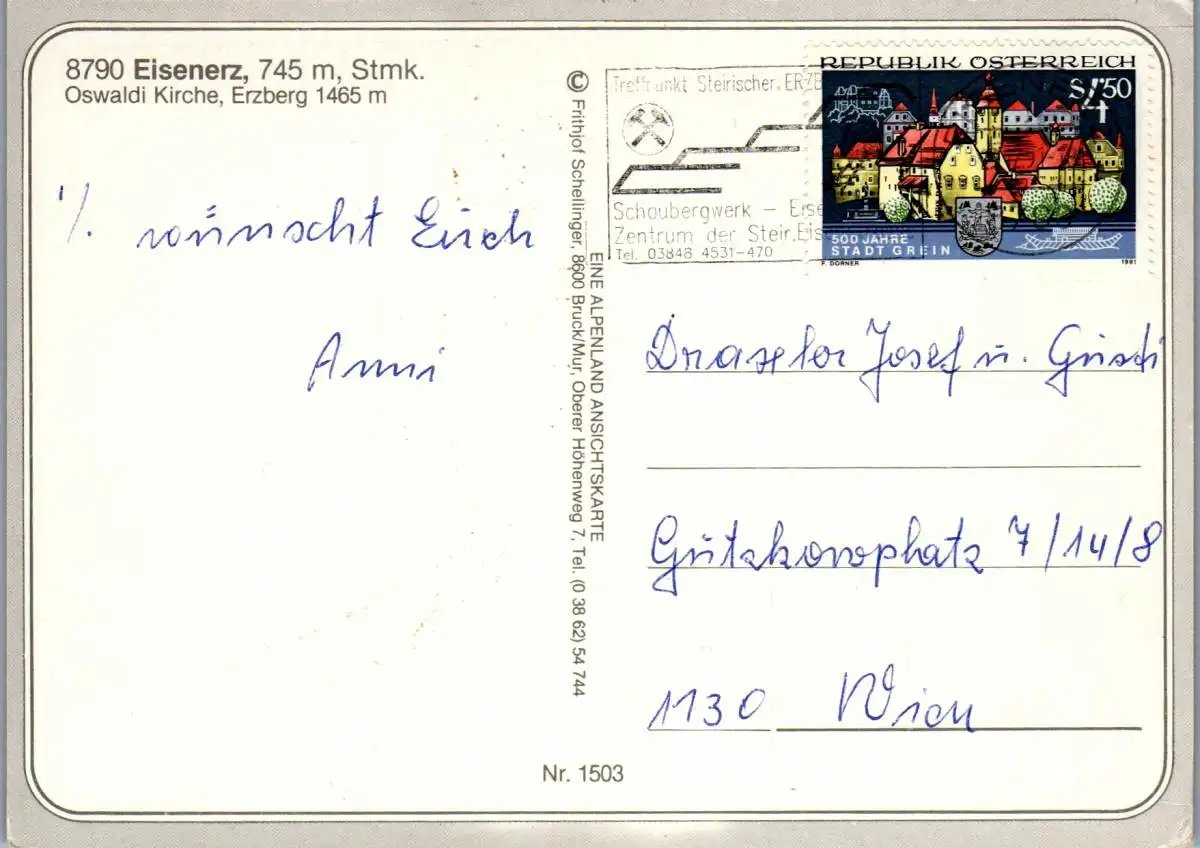 8790 Eisenerz, 745 m, Stmk.
Oswaldi Kirche, Erzberg 1465 m
1/. wünscht Euch
Anni
© Frithjof Schellinger, 8600 Bruck/Mur, Oberer Höhenweg 7, Tel. (0 38 62) 54 744
EINE ALPENLAND ANSICHTSKARTE
Nr. 1503
Treffpunkt Steirischer. ERZB
Schaubergwerk – Eise
Zentrum der Steir. Eis
Tel. 03848 4531-470
REPUBLIK ÖSTERREICH
S 4'50
500 JAHRE
STADT GREIN
F. DORNER
1991
Draxler Josef u. Gusti
Gutzkowplatz 7/14/8
1130 Wien